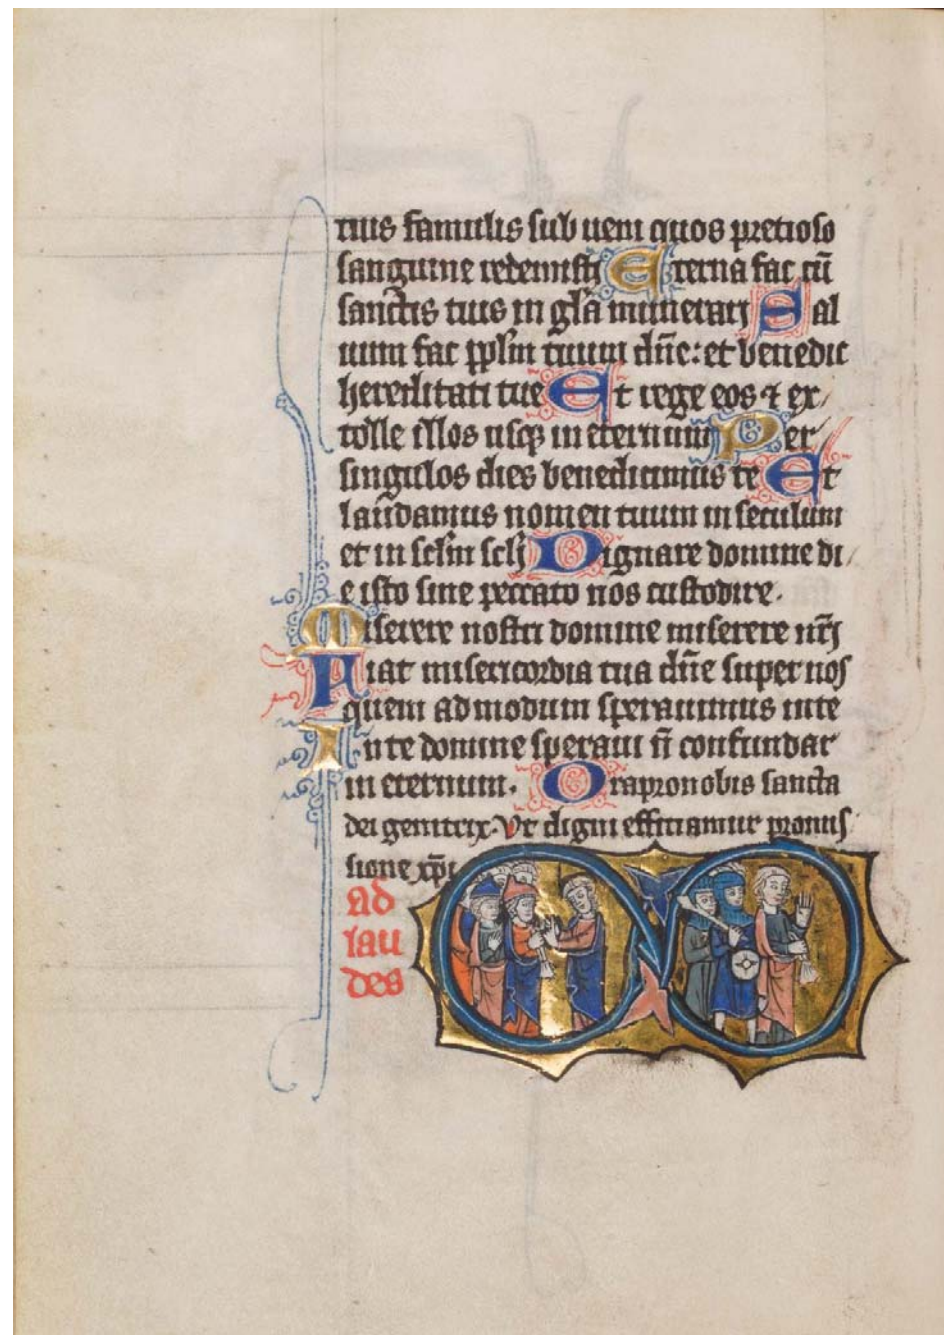 tuis famulis sub ueni quos pretioso
sanguine redemisti Eterna fac cū
sanctis tuis in gl̄a munerari Sal
uum fac pp̄lm tuum dn̄e: et benedic
hereditati tue Et rege eos ⁊ ex/
tolle illos usqꝫ in eternum Per/
singulos dies benedicimus te Et
laudamus nomen tuum in seculum
et in sc̄lm sc̄li Dignare domine di/
e isto sine peccato nos custodire.
Miserere nostri domine miserere nr̄i
Fiat misericordia tua dn̄e super nos
quem ad modum sperauimus inte
In te domine speraui n̄ confundar
in eternum. Orapronobis sancta
dei genitrix. Ut digni efficiamur promis/
sione xp̄i
ad
lau
des